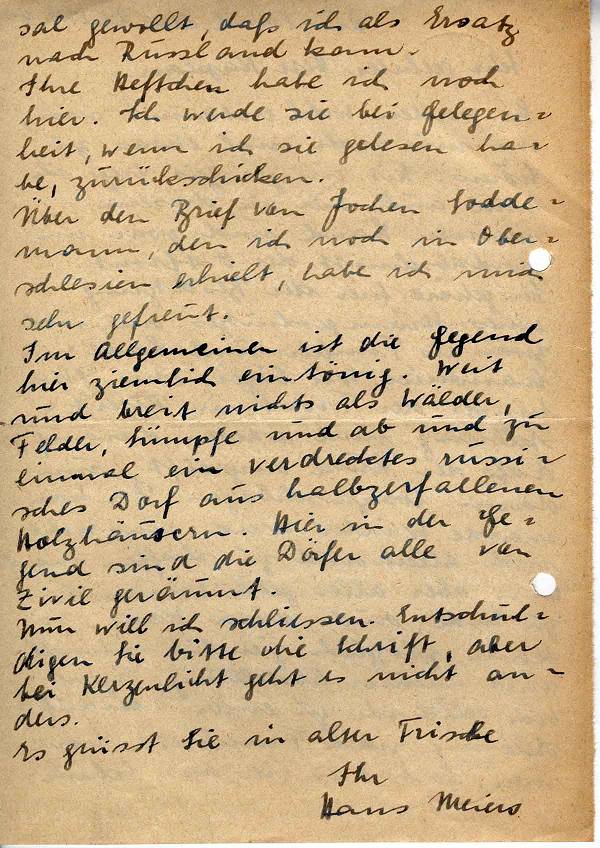 sal gewollt, daß ich als Ersatz
nach Russland kam.
Ihre Heftchen habe ich noch
hier. Ich werde sie bei Gelegen=
heit, wenn ich sie gelesen ha=
be, zurückschicken.
Über den Brief von Jochen Sodde=
mann, den ich noch in Ober=
schlesien erhielt, habe ich mich
sehr gefreut.
Im Allgemeinen ist die Gegend
hier ziemlich eintönig. Weit
und breit nichts als Wälder,
Felder, Sümpfe und ab und zu
einmal ein verdrecktes russi=
sches Dorf aus halbzerfallenen
Holzhäusern. Hier in der Ge=
gend sind die Dörfer alle von
Zivil geräumt.
Nun will ich schliessen. Entschul=
digen Sie bitte die Schrift, aber
bei Kerzenlicht geht es nicht an=
ders.
Es grüsst Sie in alter Frische
Ihr
Hans Meiers